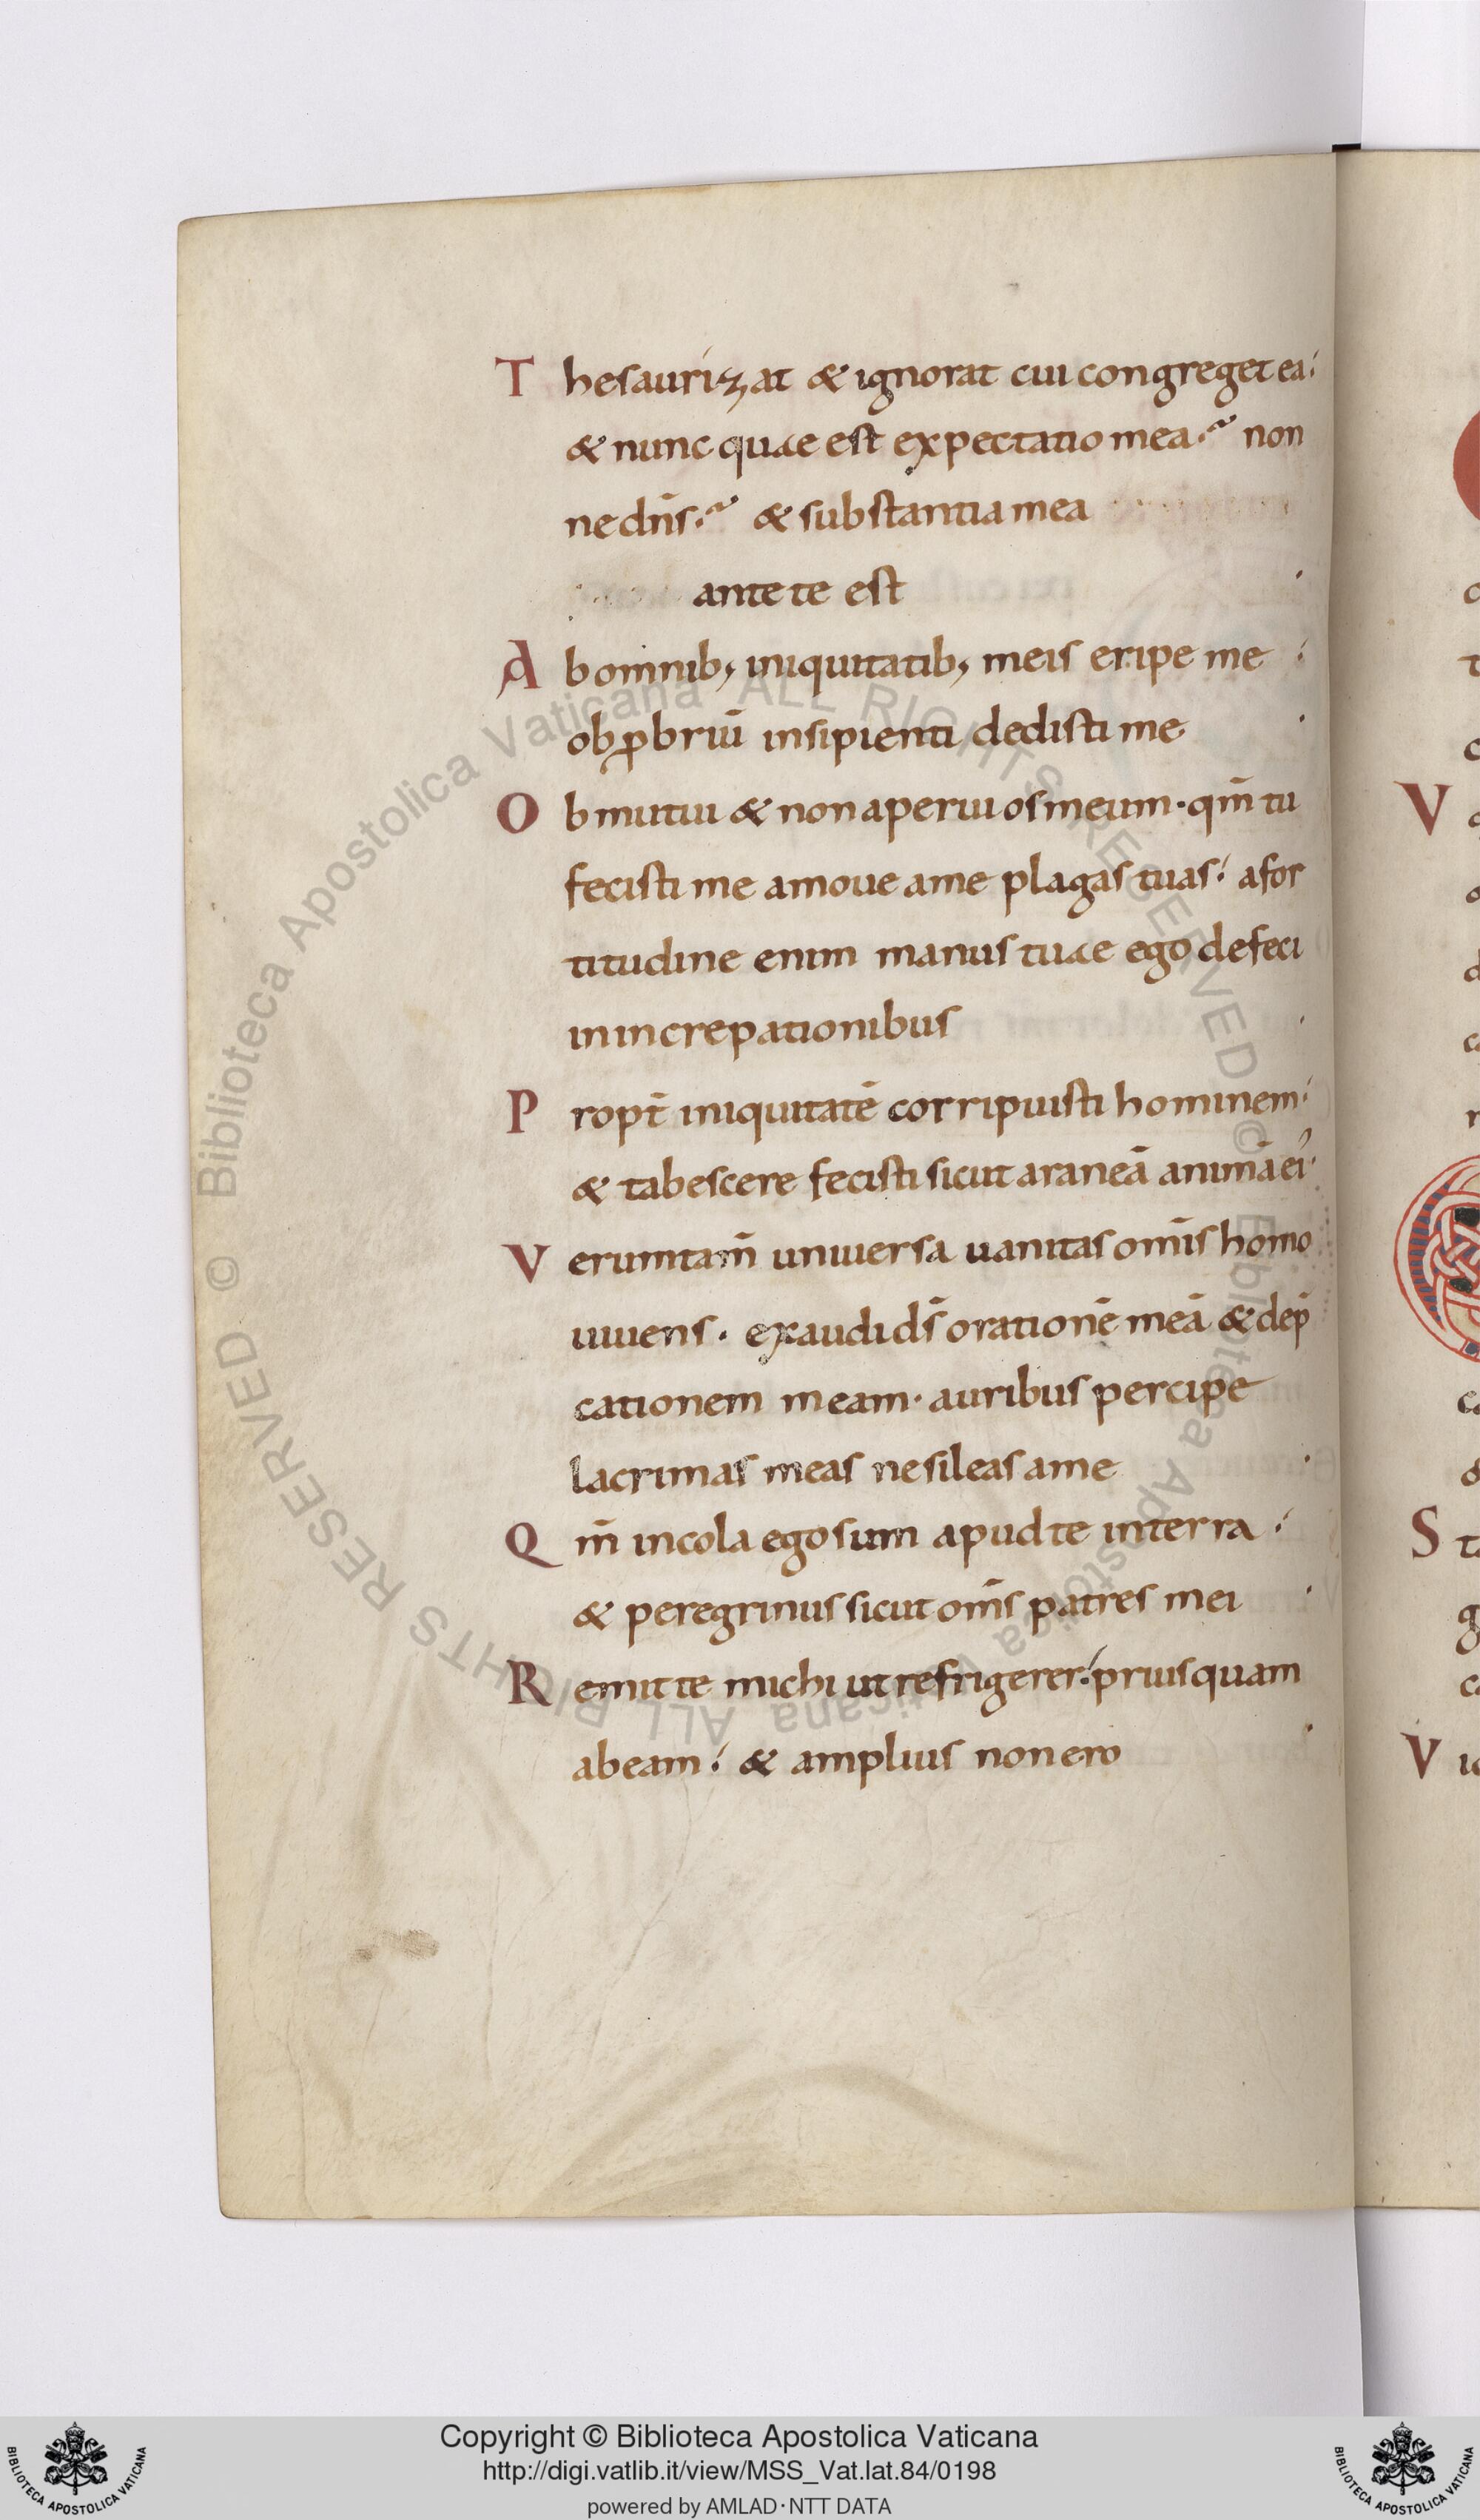 Thesaurizat & ignorat cui congreget ea
& nunc quae est expectatio mea non
ne dn̄s & substantia mea
ante te est
Ab omnib; iniquitatib; meis eripe me
obꝓbriū insipienti dedisti me
Obmutui & non aperui os meum · qm̄ tu
fecisti me amoue ame plagas tuas afor
titudine enim manus tuae ego defeci
in increpationibus
Propt̄ iniquitatē corripuisti hominem
& tabescere fecisti sicut araneā animā ei᾽
Verumtam̄ uniuersa uanitas om̄is homo
uiuens · exaudi ds̄ orationē meā & dep̄
cationem meam · auribus percipe
lacrimas meas ne sileas ame
Qm̄ incola ego sum apud te in terra
& peregrinus sicut om̄s patres mei
Remitte michi ut refrigerer priusquam
abeam & amplius non ero
V
S
V
Copyright © Biblioteca Apostolica Vaticana
http://digi.vatlib.it/view/MSS_Vat.lat.84/0198
powered by AMLAD·NTT DATA
BIBLIOTECA APOSTOLICA VATICANA
BIBLIOTECA APOSTOLICA VATICANA
© Biblioteca Apostolica Vaticana ALL RIGHTS RESERVED © Biblioteca Apostolica Vaticana ALL RIGHTS RESERVED